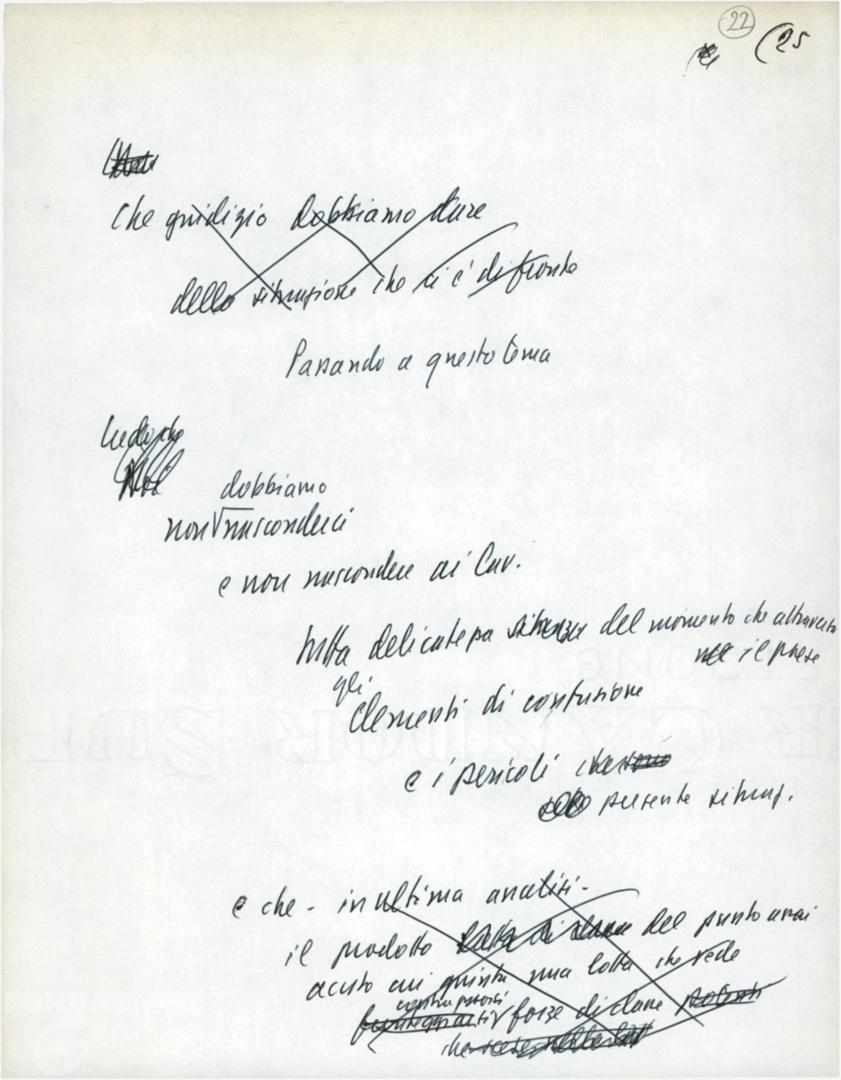 22
(25
Che giudizio dobbiamo dare
della situazione che ci è di fronte
Passando a questo tema
dobbiamo
non nasconderci
e non nascondere ai Lav.
tutta delicatezza del momento che attraversa
il paese
gli
elementi di confusione
e i pericoli
presente situaz.
e che - in ultima analisi -
il prodotto del punto assai
acuto cui giunta una lotta che vede
contrapporsi
forze di classe